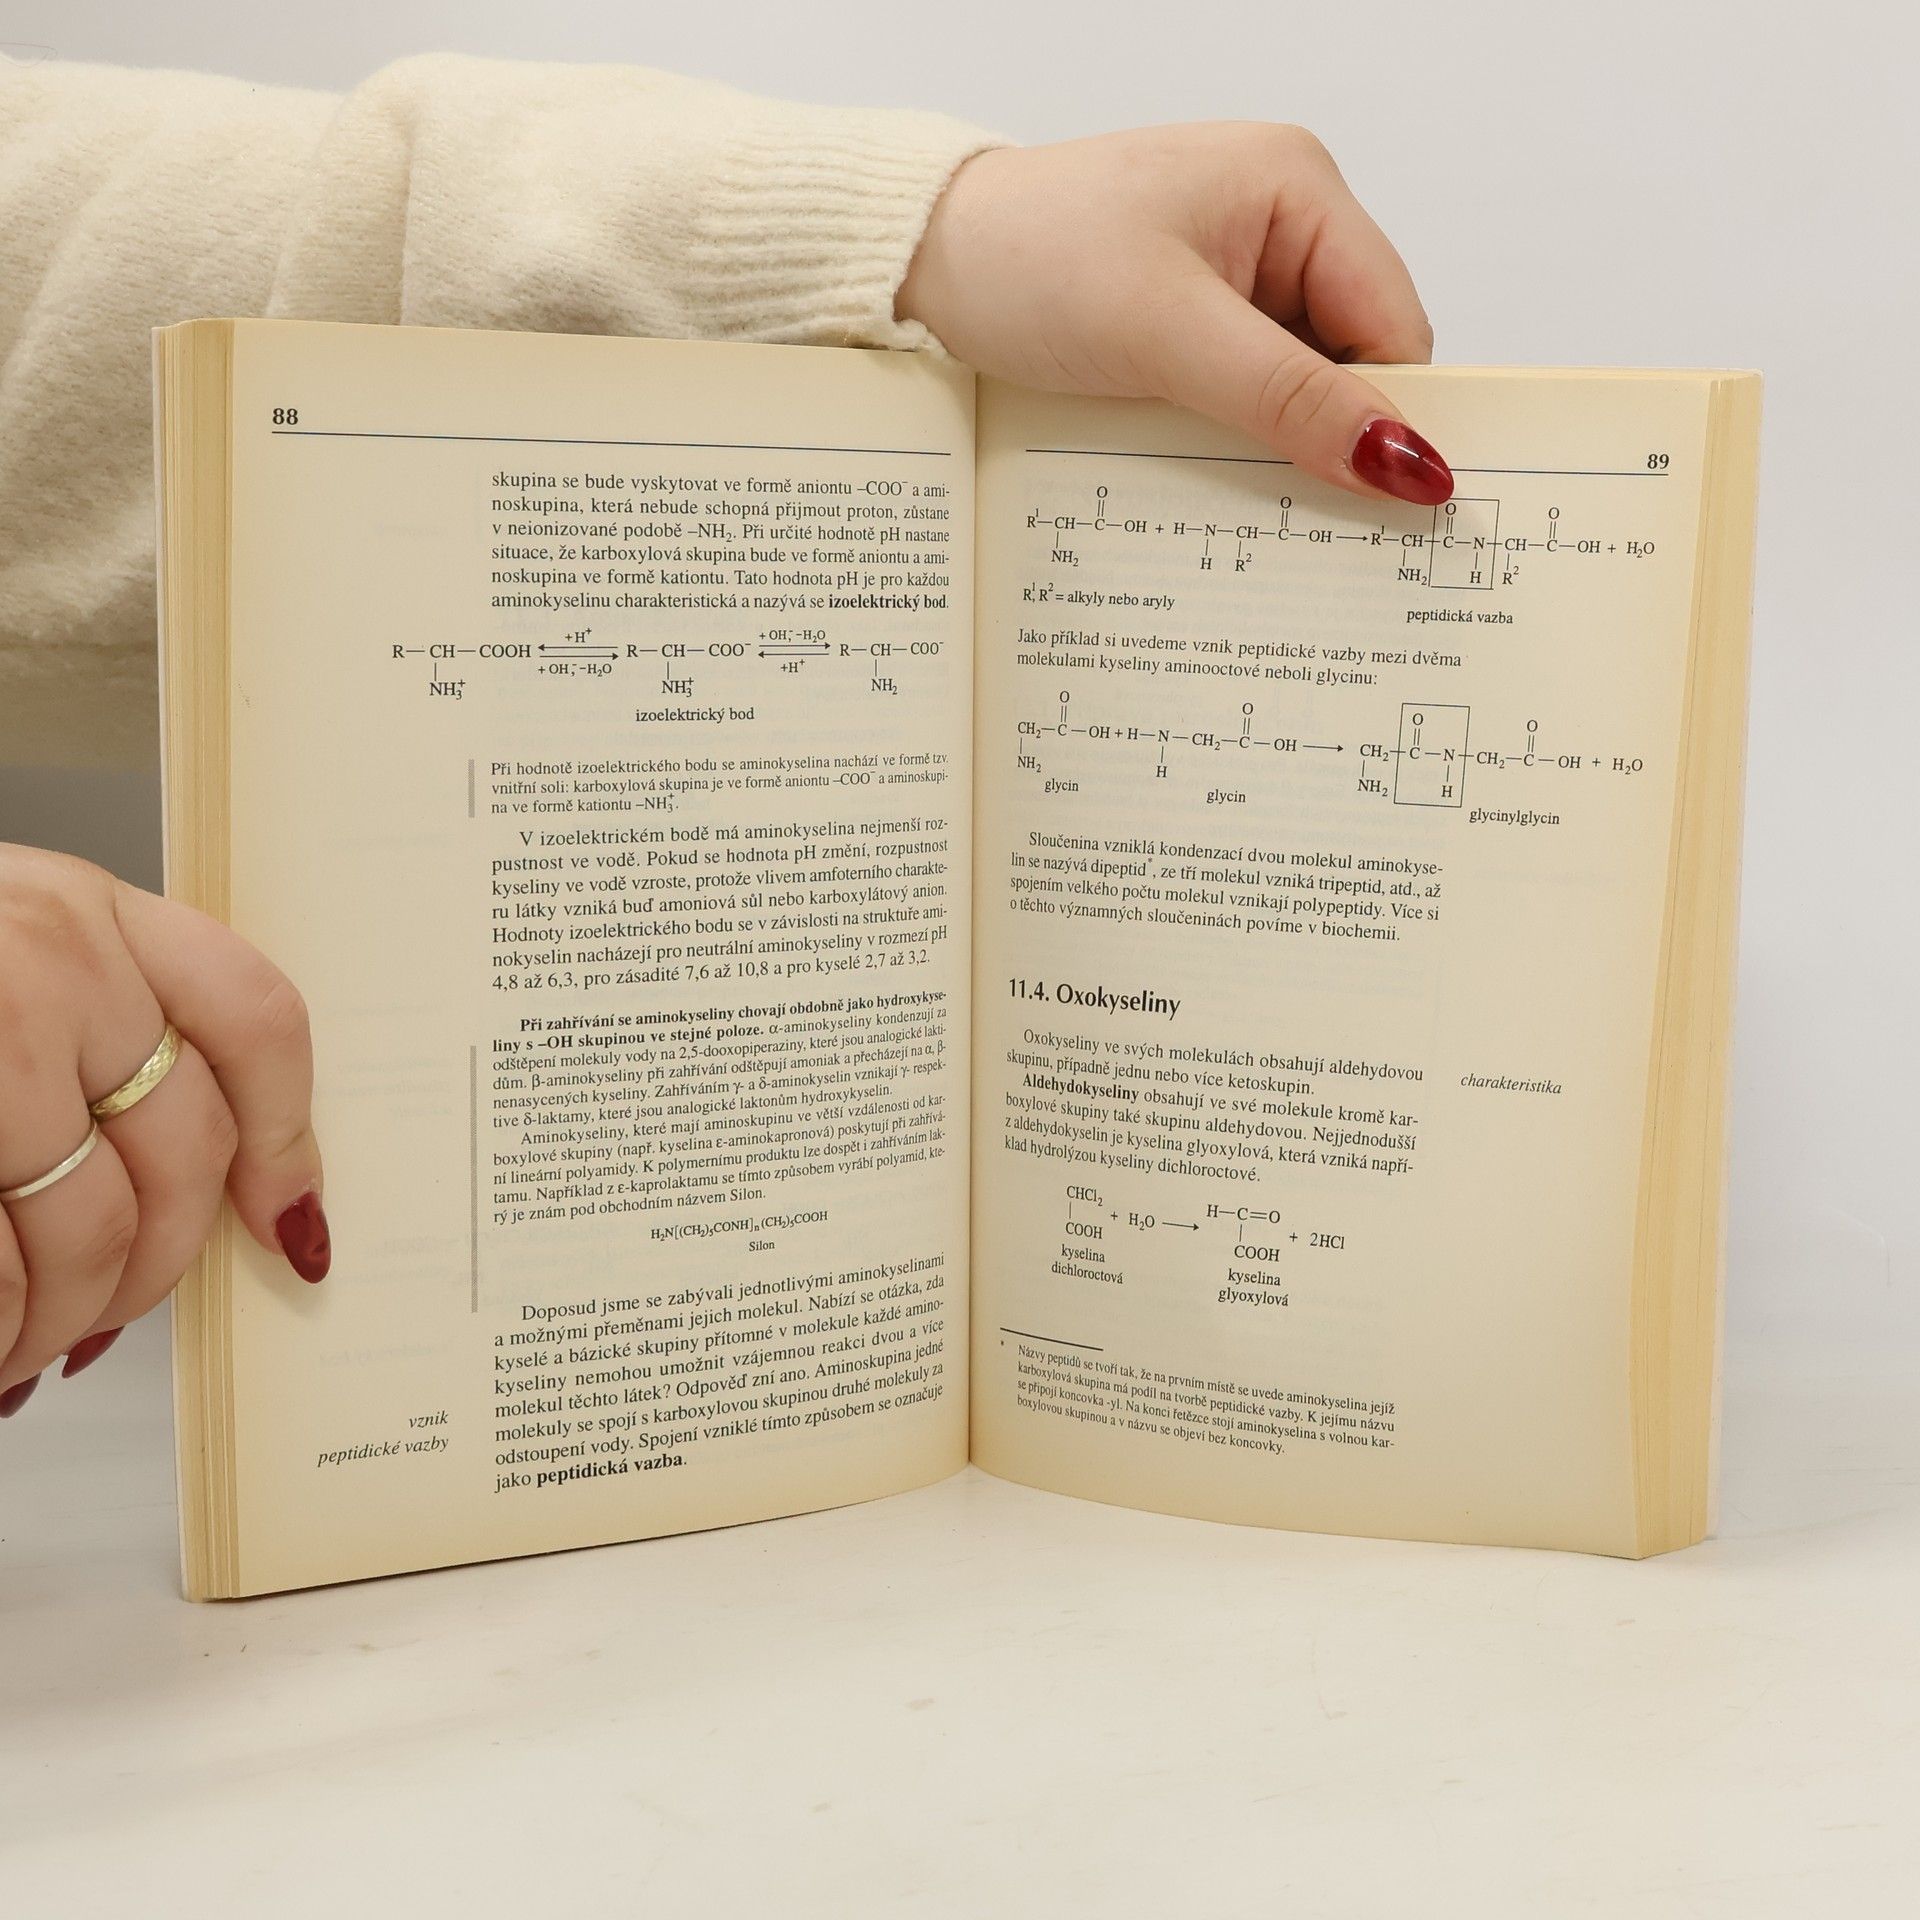 88
skupina se bude vyskytovat ve formě aniontu –COO⁻ a ami-
noskupina, která nebude schopná přijmout proton, zůstane
v neionizované podobě –NH₂. Při určité hodnotě pH nastane
situace, že karboxylová skupina bude ve formě aniontu a ami-
noskupina ve formě kationtu. Tato hodnota pH je pro každou
aminokyselinu charakteristická a nazývá se izoelektrický bod.
+H⁺ + OH⁻, –H₂O
R—CH—COOH R—CH—COO⁻ R—CH—COO⁻
+ OH⁻, –H₂O +H⁺
NH₃⁺ NH₃⁺ NH₂
izoelektrický bod
Při hodnotě izoelektrického bodu se aminokyselina nachází ve formě tzv.
vnitřní soli: karboxylová skupina je ve formě aniontu –COO⁻ a aminoskupi-
na ve formě kationtu –NH₃⁺.
V izoelektrickém bodě má aminokyselina nejmenší roz-
pustnost ve vodě. Pokud se hodnota pH změní, rozpustnost
kyseliny ve vodě vzroste, protože vlivem amfoterního charakte-
ru látky vzniká buď amoniová sůl nebo karboxylátový anion.
Hodnoty izoelektrického bodu se v závislosti na struktuře ami-
nokyselin nacházejí pro neutrální aminokyseliny v rozmezí pH
4,8 až 6,3, pro zásadité 7,6 až 10,8 a pro kyselé 2,7 až 3,2.
Při zahřívání se aminokyseliny chovají obdobně jako hydroxykyse-
liny s –OH skupinou ve stejné poloze. α-aminokyseliny kondenzují za
odštěpení molekuly vody na 2,5-dooxopiperaziny, které jsou analogické lakti-
dům. β-aminokyseliny při zahřívání odštěpují amoniak a přecházejí na α, β-
nenasycených kyseliny. Zahříváním γ- a δ-aminokyselin vznikají γ- respek-
tive δ-laktamy, které jsou analogické laktonům hydroxykyselin.
Aminokyseliny, které mají aminoskupinu ve větší vzdálenosti od kar-
boxylové skupiny (např. kyselina ε-aminokapronová) poskytují při zahřívá-
ní lineární polyamidy. K polymernímu produktu lze dospět i zahříváním lak-
tamu. Například z ε-kaprolaktamu se tímto způsobem vyrábí polyamid, kte-
rý je znám pod obchodním názvem Silon.
H₂N[(CH₂)₅CONH]ₙ(CH₂)₅COOH
Silon
Doposud jsme se zabývali jednotlivými aminokyselinami
a možnými přeměnami jejich molekul. Nabízí se otázka, zda
kyselé a bázické skupiny přítomné v molekule každé amino-
kyseliny nemohou umožnit vzájemnou reakci dvou a více
molekul těchto látek? Odpověď zní ano. Aminoskupina jedné
molekuly se spojí s karboxylovou skupinou druhé molekuly za
odstoupení vody. Spojení vzniklé tímto způsobem se označuje
jako peptidická vazba.
vznik
peptidické vazby
89
O O O O
R¹—CH—C—OH + H—N—CH—C—OH → R¹—CH—C—N—CH—C—OH + H₂O
NH₂ H R² NH₂ H R²
R¹, R² = alkyly nebo aryly
peptidická vazba
Jako příklad si uvedeme vznik peptidické vazby mezi dvěma
molekulami kyseliny aminooctové neboli glycinu:
O O O O
CH₂—C—OH + H—N—CH₂—C—OH → CH₂—C—N—CH₂—C—OH + H₂O
NH₂ H NH₂ H
glycin glycin glycinylglycin
Sloučenina vzniklá kondenzací dvou molekul aminokyse-
lin se nazývá dipeptid*, ze tří molekul vzniká tripeptid, atd., až
spojením velkého počtu molekul vznikají polypeptidy. Více si
o těchto významných sloučeninách povíme v biochemii.
11.4. Oxokyseliny
Oxokyseliny ve svých molekulách obsahují aldehydovou
skupinu, případně jednu nebo více ketoskupin.
charakteristika
Aldehydokyseliny obsahují ve své molekule kromě kar-
boxylové skupiny také skupinu aldehydovou. Nejjednodušší
z aldehydokyselin je kyselina glyoxylová, která vzniká napří-
klad hydrolýzou kyseliny dichloroctové.
CHCl₂ H—C=O
+ H₂O → + 2HCl
COOH COOH
kyselina kyselina
dichloroctová glyoxylová
* Názvy peptidů se tvoří tak, že na prvním místě se uvede aminokyselina jejíž
karboxylová skupina má podíl na tvorbě peptidické vazby. K jejímu názvu
se připojí koncovka -yl. Na konci řetězce stojí aminokyselina s volnou kar-
boxylovou skupinou a v názvu se objeví bez koncovky.